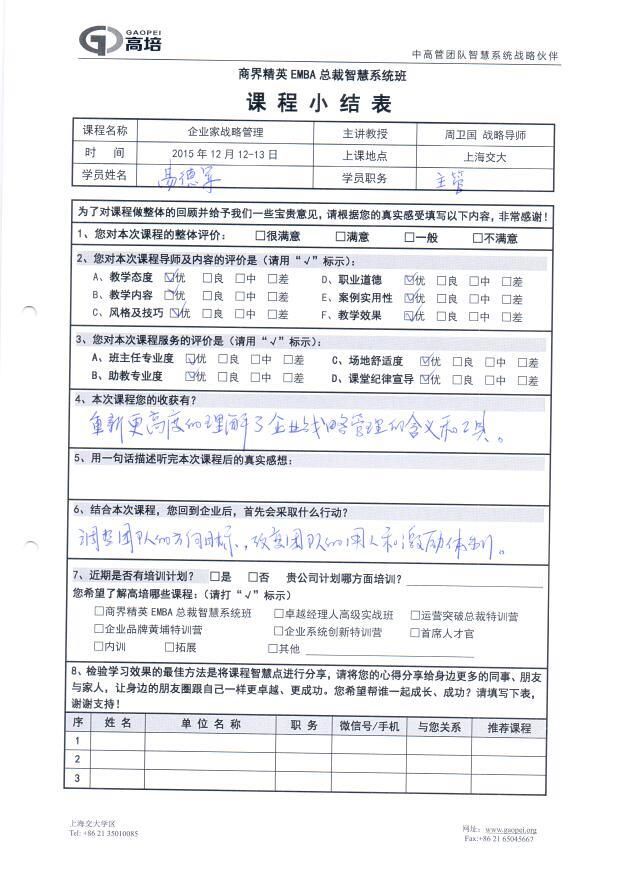 GAOPEI
高培
中高管团队智慧系统战略伙伴
商界精英 EMBA 总裁智慧系统班
课程小结表
课程名称 企业家战略管理 主讲教授 周卫国 战略导师
时 间 2015 年 12 月 12-13 日 上课地点 上海交大
学员姓名 易德军 学员职务 主管
为了对课程做整体的回顾并给予我们一些宝贵意见,请根据您的真实感受填写以下内容,非常感谢!
1、您对本次课程的整体评价: □很满意 □满意 □一般 □不满意
2、您对本次课程导师及内容的评价是(请用“√”标示):
A、教学态度 ☑优 □良 □中 □差 D、职业道德 ☑优 □良 □中 □差
B、教学内容 ☑优 □良 □中 □差 E、案例实用性 ☑优 □良 □中 □差
C、风格及技巧 ☑优 □良 □中 □差 F、教学效果 ☑优 □良 □中 □差
3、您对本次课程服务的评价是(请用“√”标示):
A、班主任专业度 ☑优 □良 □中 □差 C、场地舒适度 ☑优 □良 □中 □差
B、助教专业度 ☑优 □良 □中 □差 D、课堂纪律宣导 ☑优 □良 □中 □差
4、本次课程您的收获有?
重新更高度的理解了企业战略管理的含义和工具。
5、用一句话描述听完本次课程后的真实感想:
6、结合本次课程,您回到企业后,首先会采取什么行动?
调整团队的方向目标,改变团队的用人和激励体制。
7、近期是否有培训计划? □是 □否 贵公司计划哪方面培训?
您希望了解高培哪些课程:(请打“√”标示)
□商界精英 EMBA 总裁智慧系统班 □卓越经理人高级实战班 □运营突破总裁特训营
□企业品牌黄埔特训营 □企业系统创新特训营 □首席人才官
□内训 □拓展 □其他
8、检验学习效果的最佳方法是将课程智慧点进行分享,请将您的心得分享给身边更多的同事、朋友
与家人,让身边的朋友圈跟自己一样更卓越、更成功。您希望帮谁一起成长、成功?请填写下表,
谢谢支持!
序 姓 名 单 位 名 称 职 务 微信号/手机 与您关系 推荐课程
1
2
3
上海交大学区
Tel: +86 21 35010085
网址: www.gaopei.org
Fax:+86 21 65045667